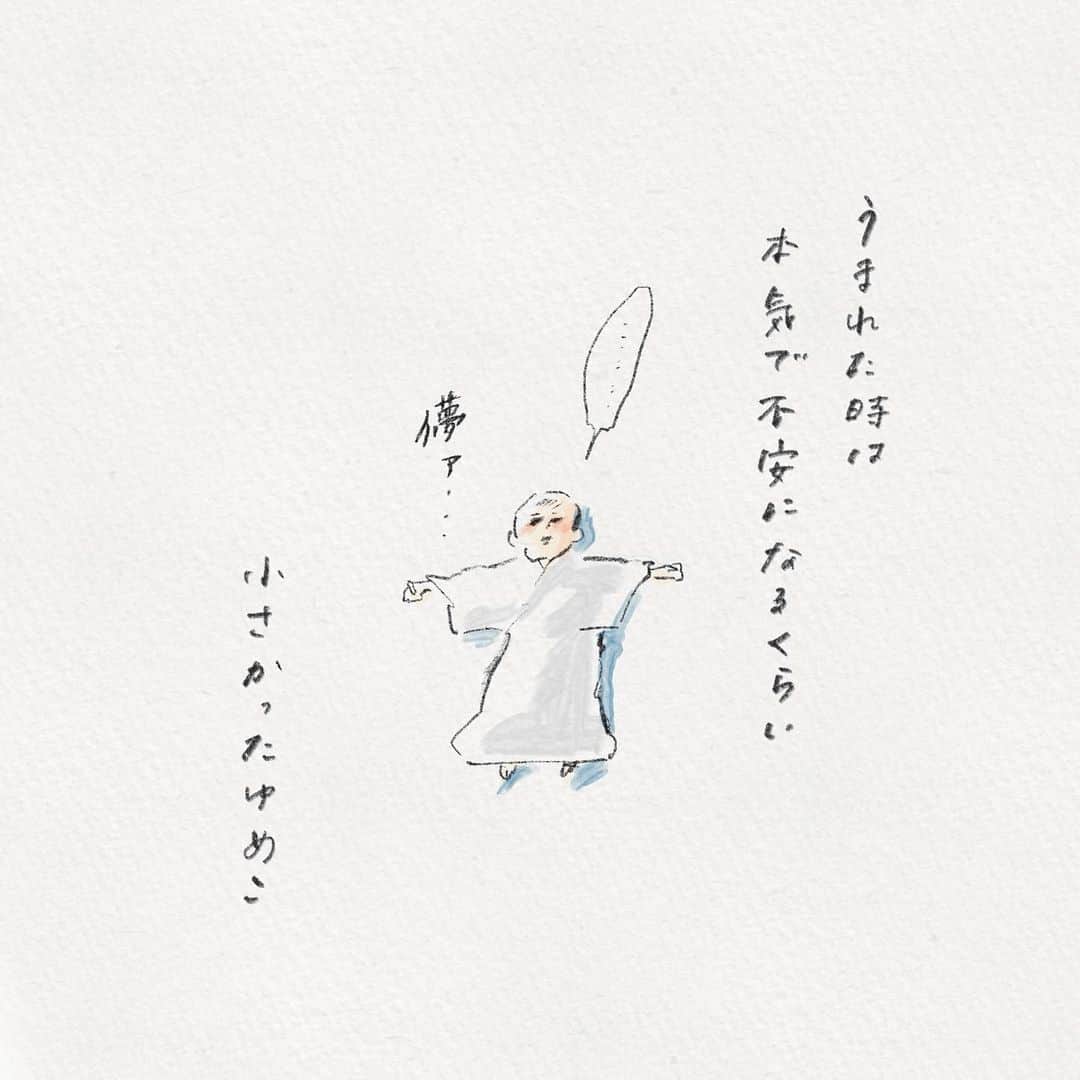 うまれた時は
本気で不安になるくらい
儚ァ...
小さかったゆめこ